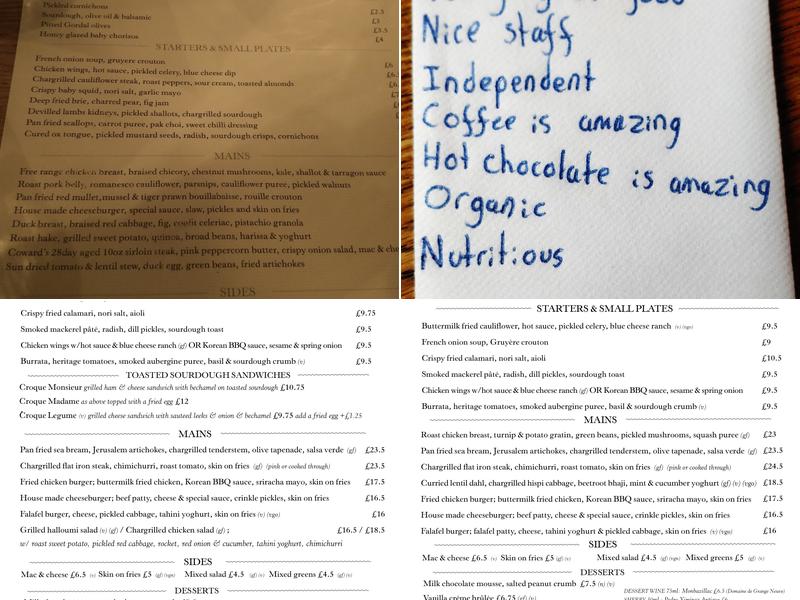 Pickled cornichons
Sourdough, olive oil & balsamic £2.5
Pitted Gordal olives £3
Honey glazed baby chorizos £3.5
£4
STARTERS & SMALL PLATES
French onion soup, gruyere crouton £6
Chicken wings, hot sauce, pickled celery, blue cheese dip
Chargrilled cauliflower steak, roast peppers, sour cream, toasted almonds
Crispy baby squid, nori salt, garlic mayo
Deep fried brie, charred pear, fig jam
Devilled lambs kidneys, pickled shallots, chargrilled sourdough
Pan fried scallops, carrot puree, pak choi, sweet chilli dressing
Cured ox tongue, pickled mustard seeds, radish, sourdough crisps, cornichons
MAINS
Free range chicken breast, braised chicory, chestnut mushrooms, kale, shallot & tarragon sauce
Roast pork belly, romanesco cauliflower, parsnips, cauliflower puree, pickled walnuts
Pan fried red mullet, mussel & tiger prawn bouillabaisse, rouille crouton
House made cheeseburger, special sauce, slaw, pickles and skin on fries
Duck breast, braised red cabbage, fig, confit celeriac, pistachio granola
Roast hake, grilled sweet potato, quinoa, broad beans, harissa & yoghurt
Coward's 28day aged 10oz sirloin steak, pink peppercorn butter, crispy onion salad, mac & che
Sun dried tomato & lentil stew, duck egg, green beans, fried artichokes
SIDES
Nice staff
Independent
Coffee is amazing
Hot chocolate is amazing
Organic
Nutritious
Crispy fried calamari, nori salt, aioli £9.75
Smoked mackerel pâté, radish, dill pickles, sourdough toast £9.5
Chicken wings w/hot sauce & blue cheese ranch (gf) OR Korean BBQ sauce, sesame & spring onion £9.5
Burrata, heritage tomatoes, smoked aubergine puree, basil & sourdough crumb (v) £9.5
TOASTED SOURDOUGH SANDWICHES
Croque Monsieur grilled ham & cheese sandwich with bechamel on toasted sourdough £10.75
Croque Madame as above topped with a fried egg £12
Croque Legume (v) grilled cheese sandwich with sauteed leeks & onion & bechamel £9.75 add a fried egg +£1.25
MAINS
Pan fried sea bream, Jerusalem artichokes, chargrilled tenderstem, olive tapenade, salsa verde (gf) £23.5
Chargrilled flat iron steak, chimichurri, roast tomato, skin on fries (gf) (pink or cooked through) £23.5
Fried chicken burger; buttermilk fried chicken, Korean BBQ sauce, sriracha mayo, skin on fries £17.5
House made cheeseburger; beef patty, cheese & special sauce, crinkle pickles, skin on fries £16.5
Falafel burger, cheese, pickled cabbage, tahini yoghurt, skin on fries (v) (vgo) £16
Grilled halloumi salad (v) (gf) / Chargrilled chicken salad (gf) ; £16.5 / £18.5
w/ roast sweet potato, pickled red cabbage, rocket, red onion & cucumber, tahini yoghurt, chimichurri
SIDES
Mac & cheese £6.5 (v) Skin on fries £5 (gf) (vgo) Mixed salad £4.5 (gf) (v) Mixed greens £4.5 (gf) (v)
DESSERTS
STARTERS & SMALL PLATES
Buttermilk fried cauliflower, hot sauce, pickled celery, blue cheese ranch (v) (vgo) £9.5
French onion soup, Gruyère crouton £9
Crispy fried calamari, nori salt, aioli £10.5
Smoked mackerel pâté, radish, dill pickles, sourdough toast £9.5
Chicken wings w/hot sauce & blue cheese ranch (gf) OR Korean BBQ sauce, sesame & spring onion £9.5
Burrata, heritage tomatoes, smoked aubergine puree, basil & sourdough crumb (v) £9.5
MAINS
Roast chicken breast, turnip & potato gratin, green beans, pickled mushrooms, squash puree (gf) £23
Pan fried sea bream, Jerusalem artichokes, chargrilled tenderstem, olive tapenade, salsa verde (gf) £23.5
Chargrilled flat iron steak, chimichurri, roast tomato, skin on fries (gf) (pink or cooked through) £24.5
Curried lentil dahl, chargrilled hispi cabbage, beetroot bhaji, mint & cucumber yoghurt (gf) (v) (vgo) £18.5
Fried chicken burger; buttermilk fried chicken, Korean BBQ sauce, sriracha mayo, skin on fries £17.5
House made cheeseburger; beef patty, cheese & special sauce, crinkle pickles, skin on fries £16.5
Falafel burger; falafel patty, cheese, tahini yoghurt & pickled cabbage, skin on fries (v) (vgo) £16
SIDES
Mac & cheese £6.5 (v) Skin on fries £5 (gf) (vgo) Mixed salad £4.5 (gf) (v) Mixed greens £5 (gf) (v)
DESSERTS
Milk chocolate mousse, salted peanut crumb £7.5 (n) (v)
DESSERT WINE 75ml: Monbazillac £6.5 (Domaine de Grange Neuve)
Vanilla crème brûlée £6.75 (v)